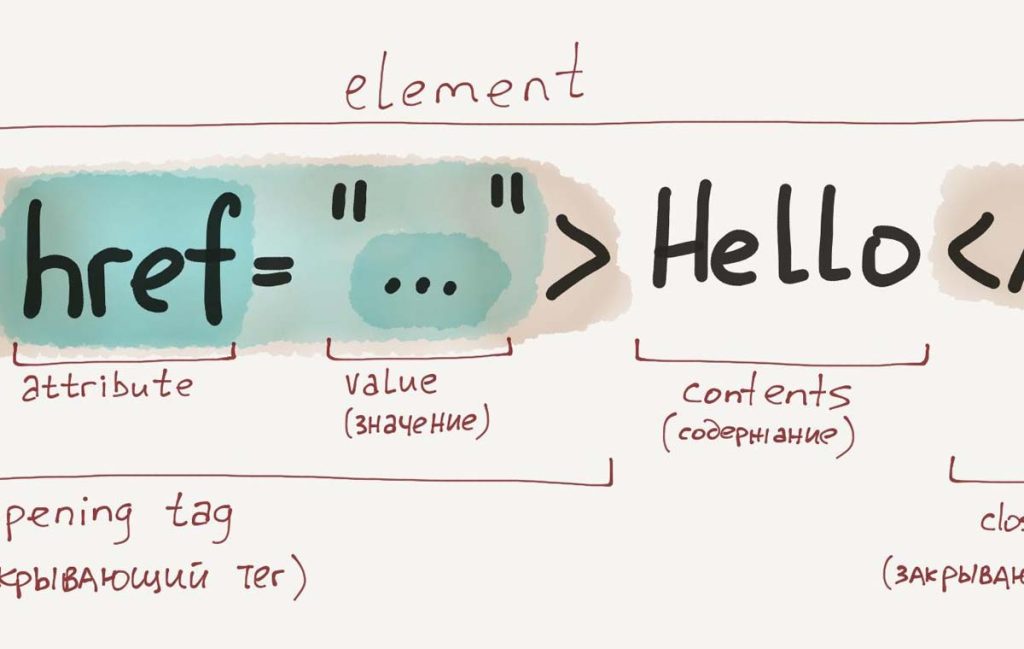 element
href="...">Hello</
attribute
value
(значение)
contents
(содержание)
pening tag
крывающий тег)
clos
(закрываю